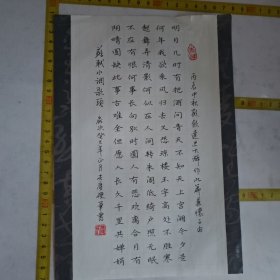 丙辰中秋歡飲達旦大醉作此篇兼懷子由
明月几時有把酒問青天不知天上宮闕今夕是
何年我欲乘風归去又恐瓊樓玉宇高處不胜寒
起舞弄清影何似在人间转朱阁低绮户照无眠
不应有恨何事長向別時圆人有悲欢离合月有
阴晴圆缺此事古难全但愿人長久千里共嬋娟
蘇軾水调歌頭 歲次癸巳年正月